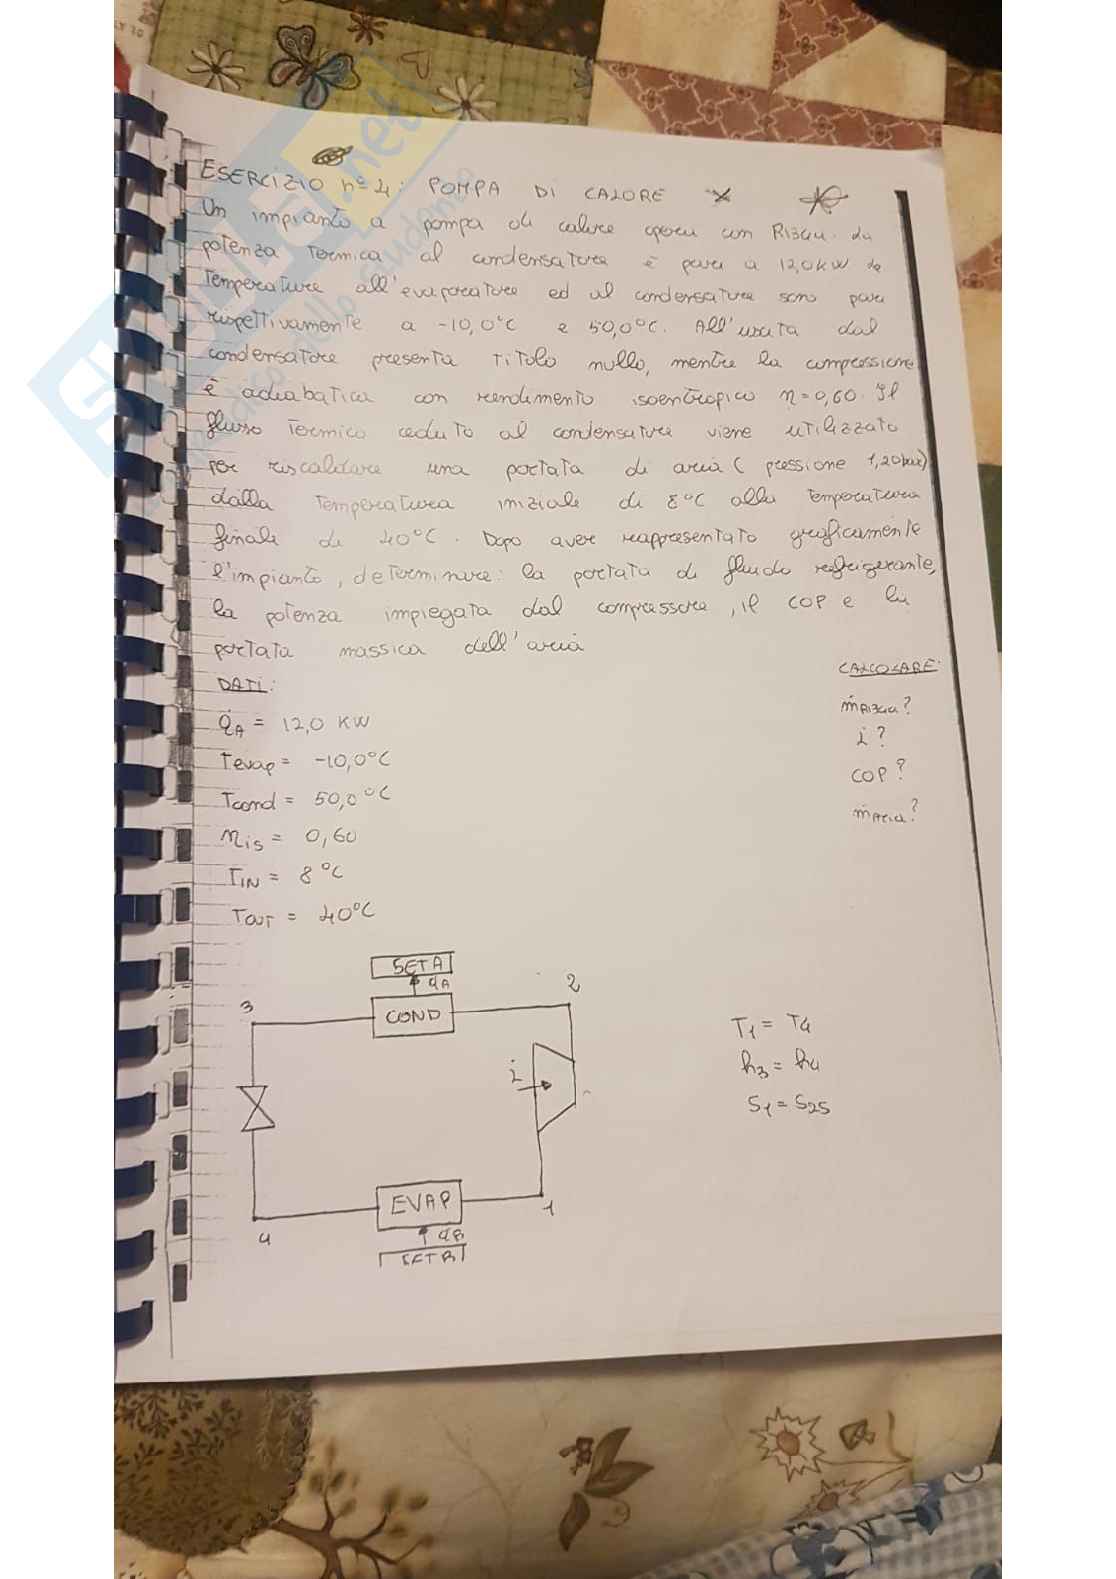 ESERCIZIO n° 4: POMPA DI CALORE
Un impianto a pompa di calore opera con R134a. La
potenza termica al condensatore è pari a 12,0 kW le
temperature all'evaporatore ed al condensatore sono pari
rispettivamente a -10,0°C e 50,0°C. All'uscita dal
condensatore presenta titolo nullo, mentre la compressione
è adiabatica con rendimento isoentropico η=0,60. Il
flusso termico ceduto al condensatore viene utilizzato
per riscaldare una portata di aria (pressione 1,20 bar)
dalla temperatura iniziale di 8°C alla temperatura
finale di 40°C. Dopo aver rappresentato graficamente
l'impianto, determinare: la portata di fluido refrigerante,
la potenza impiegata dal compressore, il COP e la
portata massica dell'aria
DATI:
q̇A = 12,0 KW
Tevap = -10,0°C
Tcond = 50,0°C
ηis = 0,60
TIN = 8°C
TOUT = 40°C
CALCOLARE:
ṁR134a?
L̇?
COP?
ṁAria?
SET A
qA
COND
2
3
L̇
EVAP
1
4
qB
SET B
T1 = T4
h3 = h4
S1 = S2S